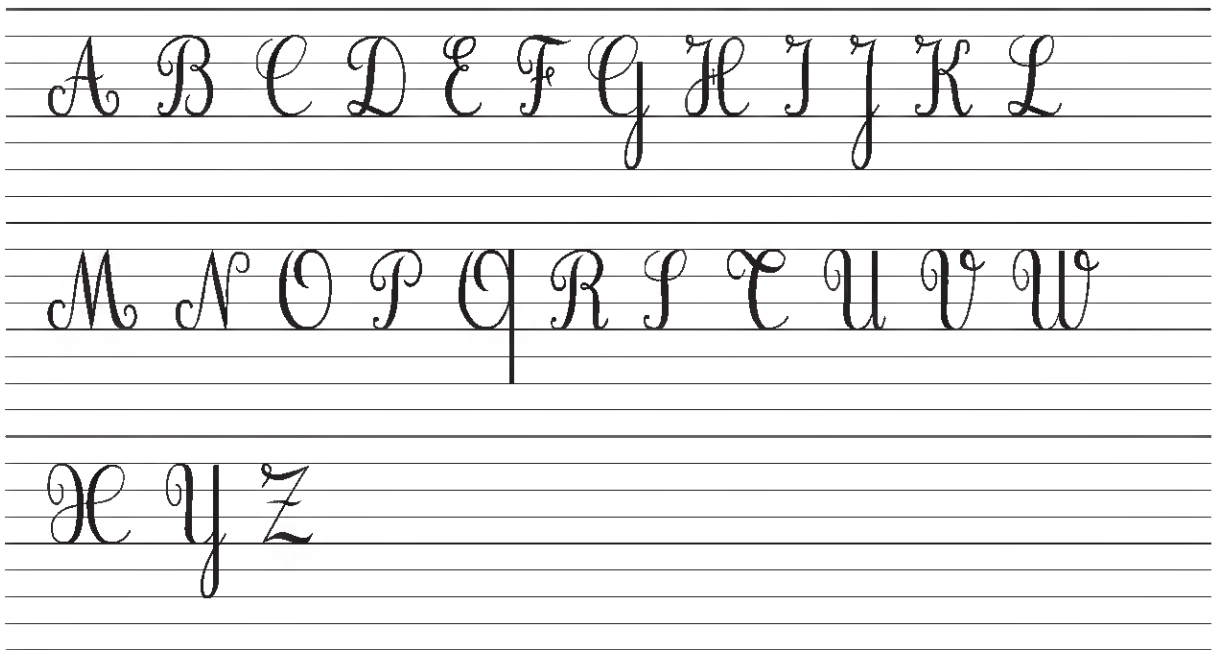 A B C D E F G H I J K L
M N O P Q R S T U V W
X Y Z